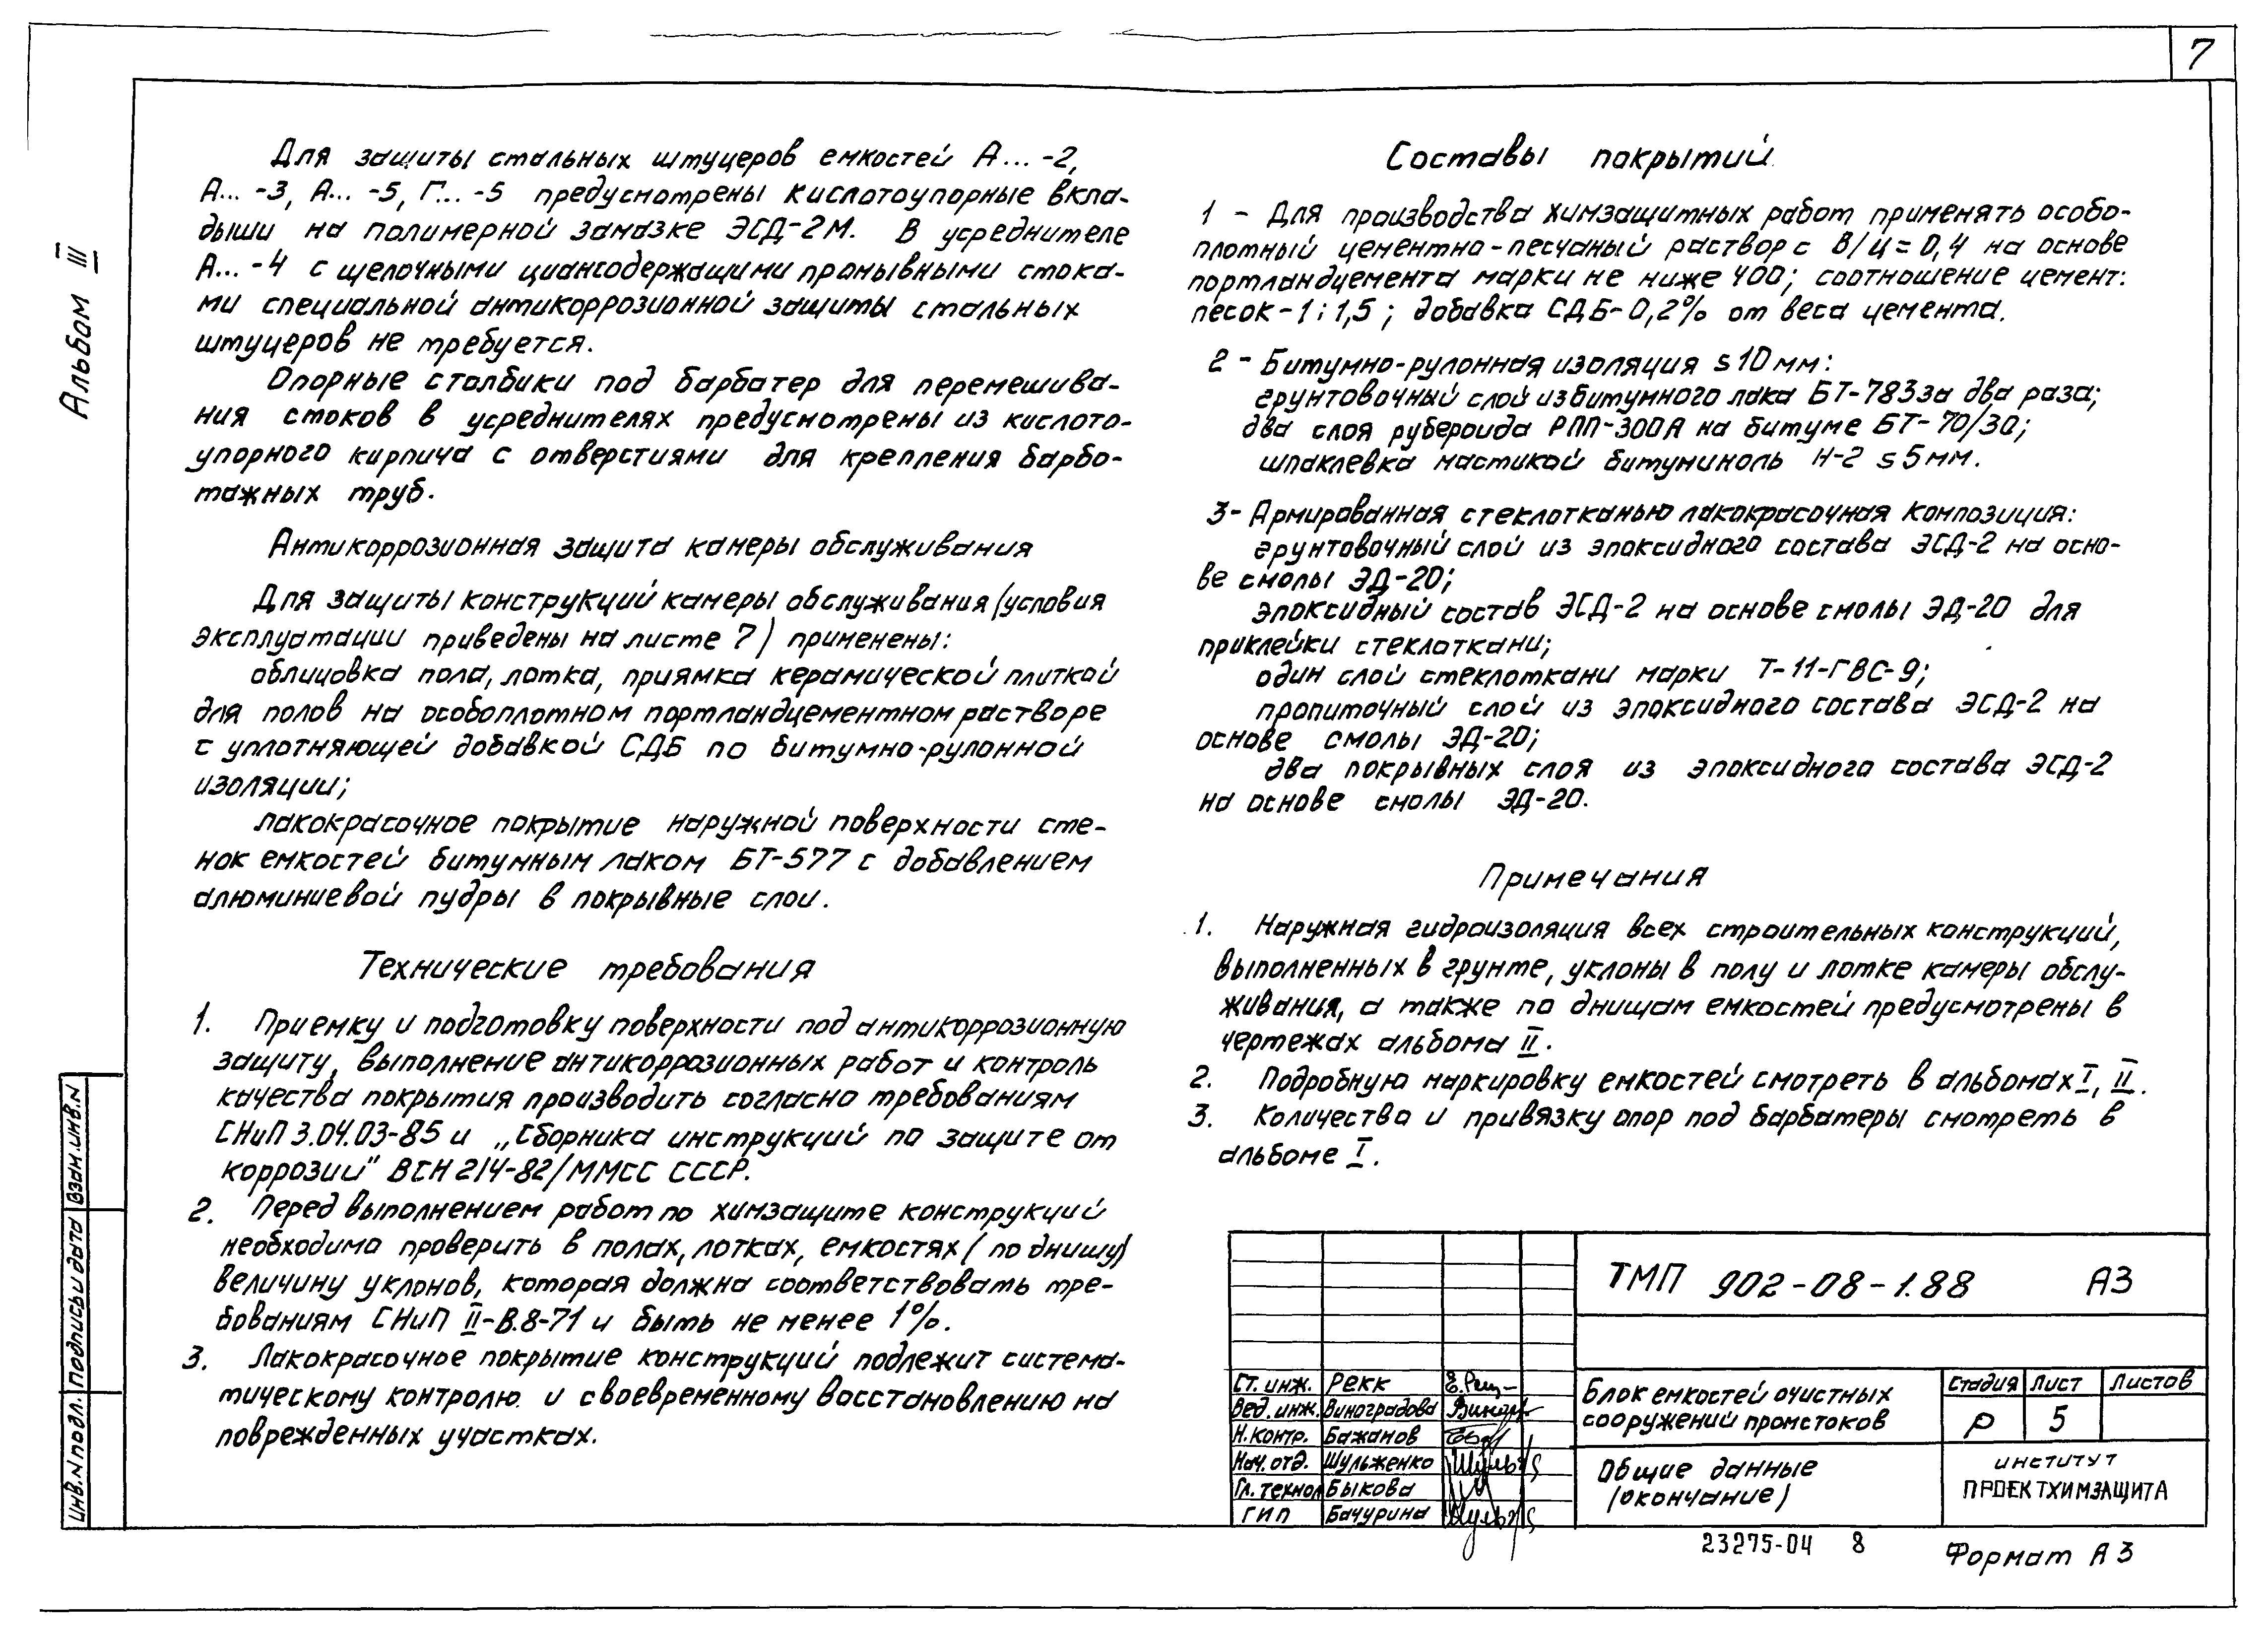 7
Альбом III
Для защиты стальных штуцеров емкостей А... -2,
А... -3, А... -5, Г... -5 предусмотрены кислотоупорные вкла-
дыши на полимерной замазке ЭСД-2М. В усреднителе
А... -4 с щелочными циансодержащими промывными стока-
ми специальной антикоррозионной защиты стальных
штуцеров не требуется.
Опорные столбики под барбатер для перемешива-
ния стоков в усреднителях предусмотрены из кислото-
упорного кирпича с отверстиями для крепления барбо-
тажных труб.
Антикоррозионная защита камеры обслуживания
Для защиты конструкций камеры обслуживания (условия
эксплуатации приведены на листе 7) применены:
облицовка пола, лотка, приямка керамической плиткой
для полов на особоплотном портландцементном растворе
с уплотняющей добавкой СДБ по битумно-рулонной
изоляции;
лакокрасочное покрытие наружной поверхности сте-
нок емкостей битумным лаком БТ-577 с добавлением
алюминиевой пудры в покрывные слои.
Технические требования
1. Приемку и подготовку поверхности под антикоррозионную
защиту, выполнение антикоррозионных работ и контроль
качества покрытия производить согласно требованиям
СНиП 3.04.03-85 и „Сборника инструкций по защите от
коррозии" ВСН 214-82/ММСС СССР.
2. Перед выполнением работ по химзащите конструкций
необходимо проверить в полах, лотках, емкостях (по днищу)
величину уклонов, которая должна соответствовать тре-
бованиям СНиП II-В.8-71 и быть не менее 1%.
3. Лакокрасочное покрытие конструкций подлежит система-
тическому контролю и своевременному восстановлению на
поврежденных участках.
Составы покрытий
1 - Для производства химзащитных работ применять особо-
плотный цементно-песчаный раствор с В/Ц = 0,4 на основе
портландцемента марки не ниже 400; соотношение цемент:
песок - 1:1,5; добавка СДБ-0,2% от веса цемента.
2 - Битумно-рулонная изоляция s 10 мм:
грунтовочный слой из битумного лака БТ-783 за два раза;
два слоя рубероида РПП-300А на битуме БТ-70/30;
шпаклевка мастикой битуминоль Н-2 s 5 мм.
3- Армированная стеклотканью лакокрасочная композиция:
грунтовочный слой из эпоксидного состава ЭСД-2 на осно-
ве смолы ЭД-20;
эпоксидный состав ЭСД-2 на основе смолы ЭД-20 для
приклейки стеклоткани;
один слой стеклоткани марки Т-11-ГВС-9;
пропиточный слой из эпоксидного состава ЭСД-2 на
основе смолы ЭД-20;
два покрывных слоя из эпоксидного состава ЭСД-2
на основе смолы ЭД-20.
Примечания
1. Наружная гидроизоляция всех строительных конструкций,
выполненных в грунте, уклоны в полу и лотке камеры обслу-
живания, а также по днищам емкостей предусмотрены в
чертежах альбома II.
2. Подробную маркировку емкостей смотреть в альбомах I, II.
3. Количества и привязку опор под барбатеры смотреть в
альбоме I.
Инв.N подл. Подпись и дата Взам.инв.N
ТМП 902-08-1.88 АЗ
Ст. инж. Рекк
Вед. инж. Виноградова
Н.контр. Бажанов
Нач. отд. Шульженко
Гл. технол Быкова
ГИП Бачурина
Блок емкостей очистных
сооружений промстоков
Стадия Лист Листов
Р 5
Общие данные
(окончание)
ИНСТИТУТ
ПРОЕКТХИМЗАЩИТА
23275-04 8
Формат А3